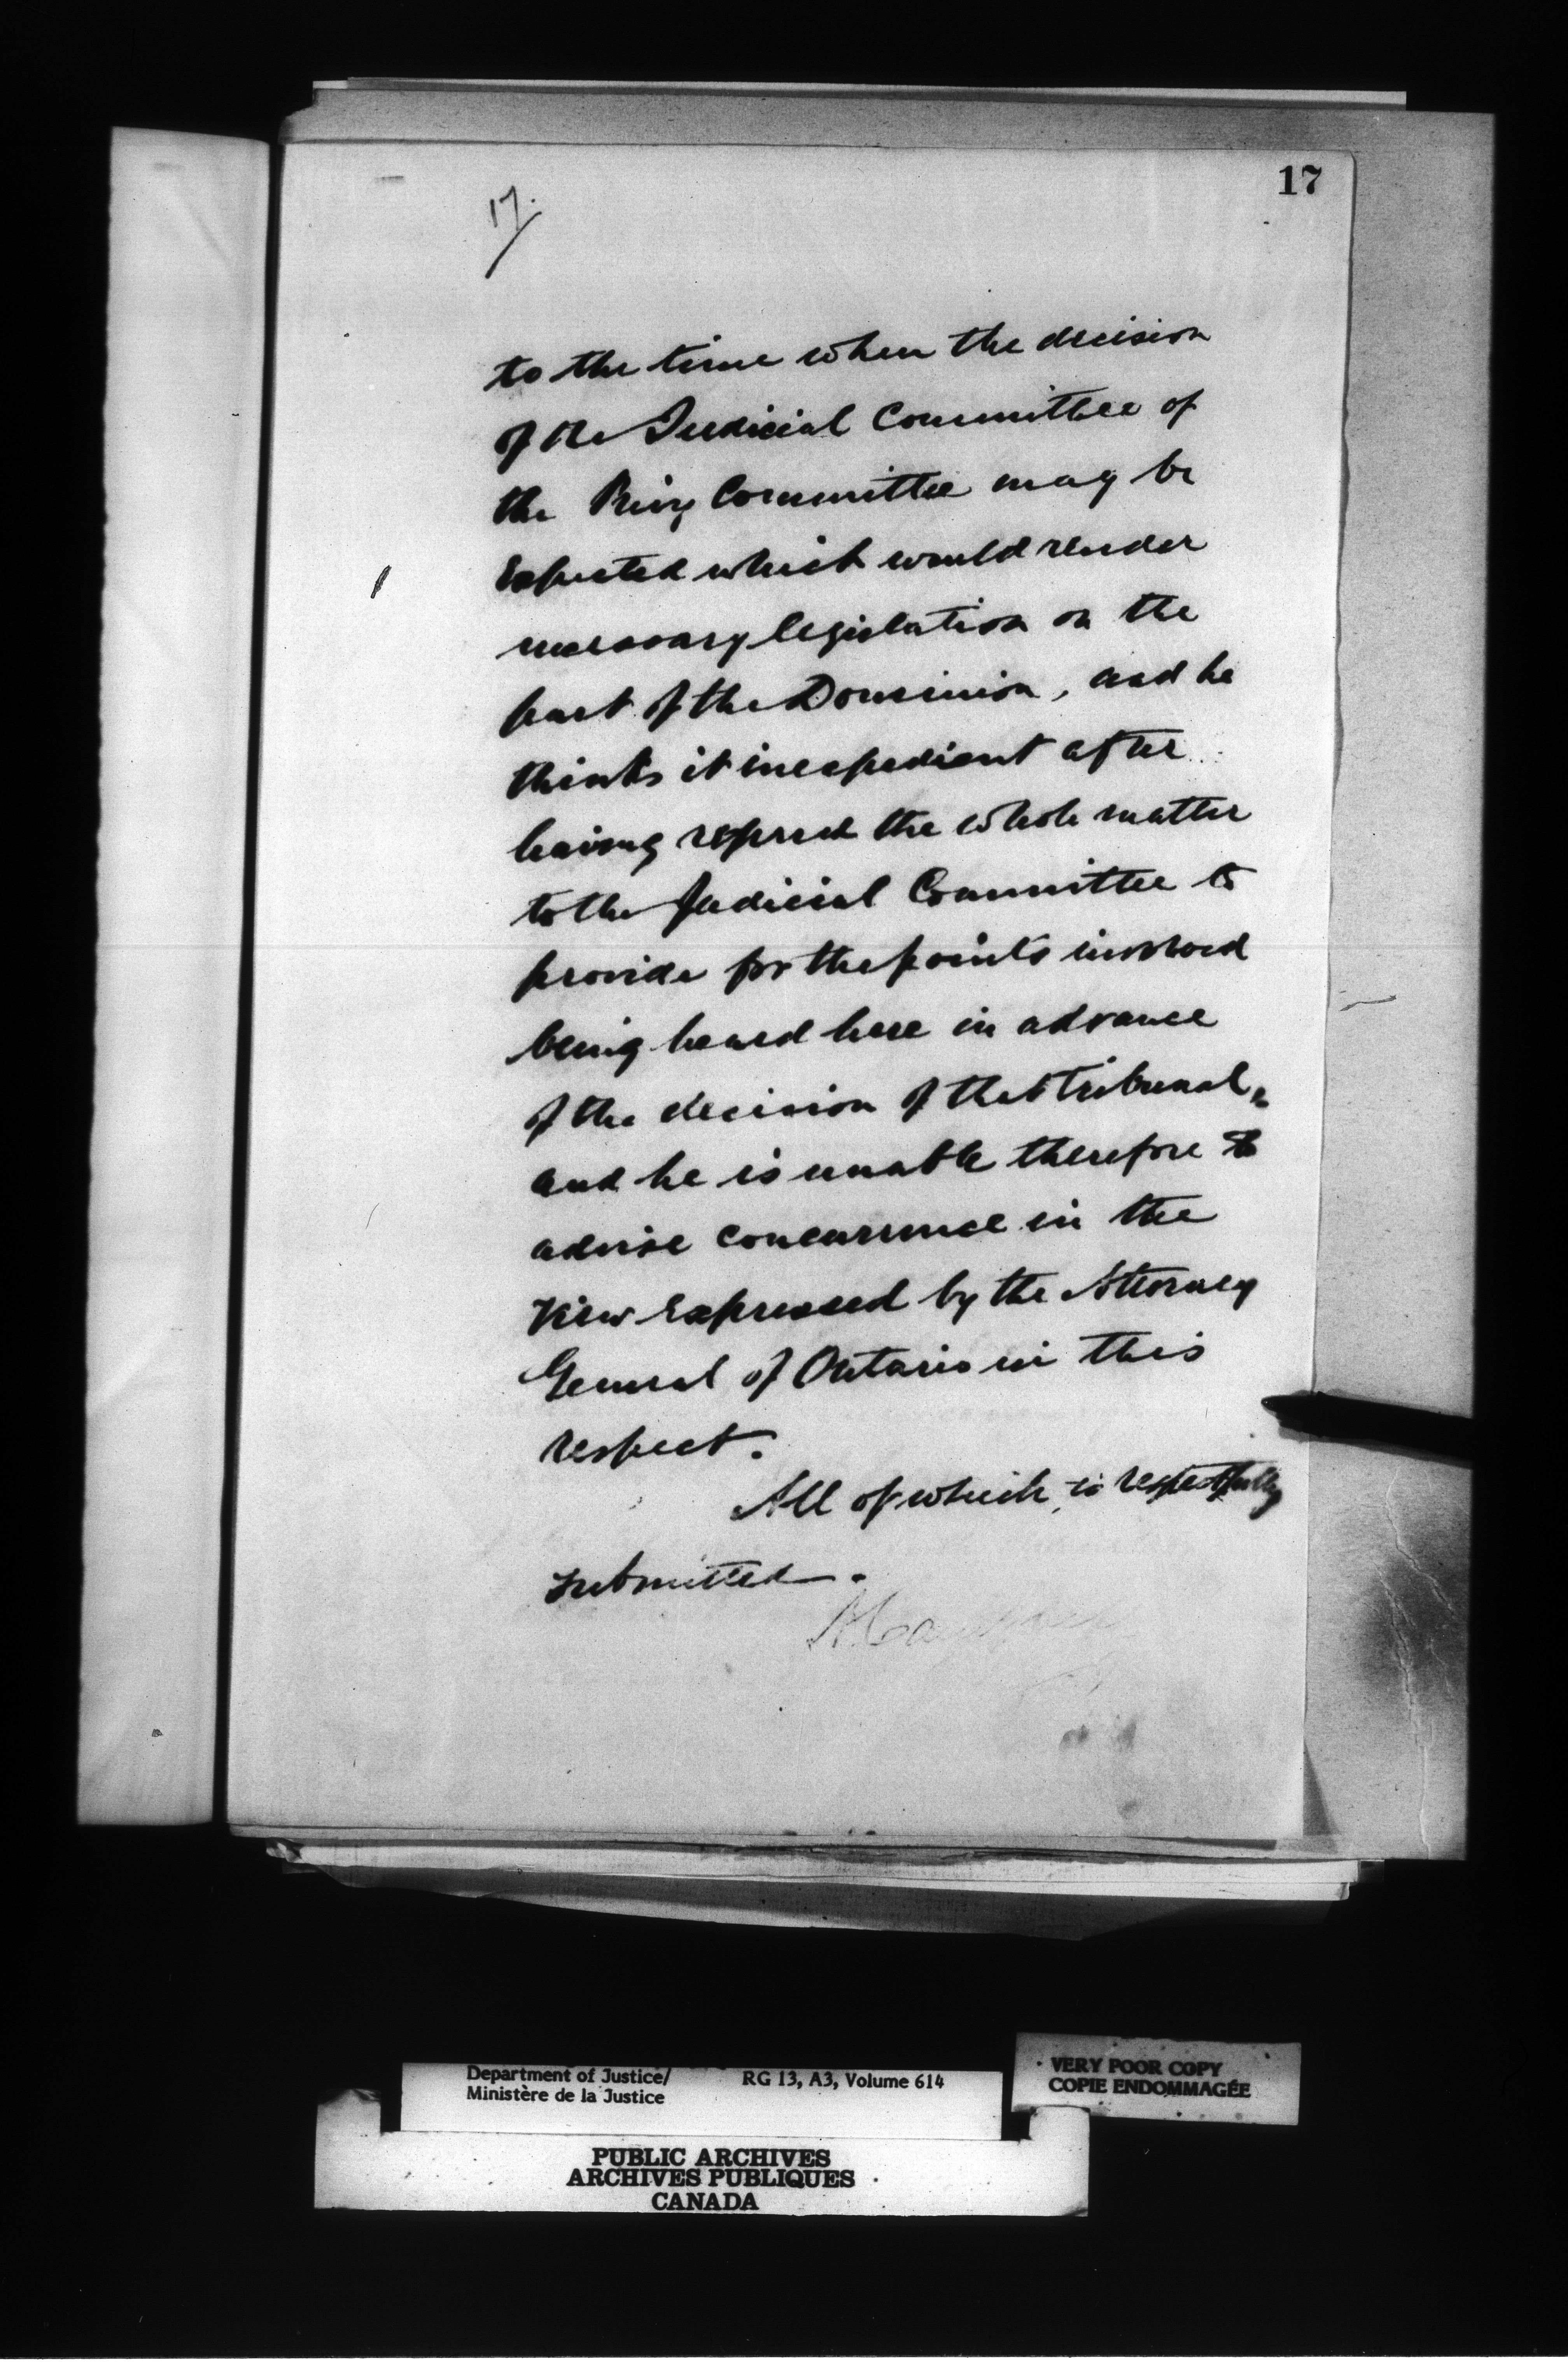 17
17.
to the time when the decision
of the Judicial Committee of
the Privy Committee may be
Expected which would render
necessary legislation on the
part of the Dominion, and he
thinks it inexpedient after
having referred the whole matter
to the Judicial Committee to
provide for the points involved
being heard here in advance
of the decision of that tribunal,
and he is unable therefore to
advise concurrence in the
view expressed by the Attorney
General of Ontario in this
respect.
All of which is respectfully
submitted.
Department of Justice/
Ministère de la Justice
RG 13, A3, Volume 614
VERY POOR COPY
COPIE ENDOMMAGÉE
PUBLIC ARCHIVES
ARCHIVES PUBLIQUES
CANADA